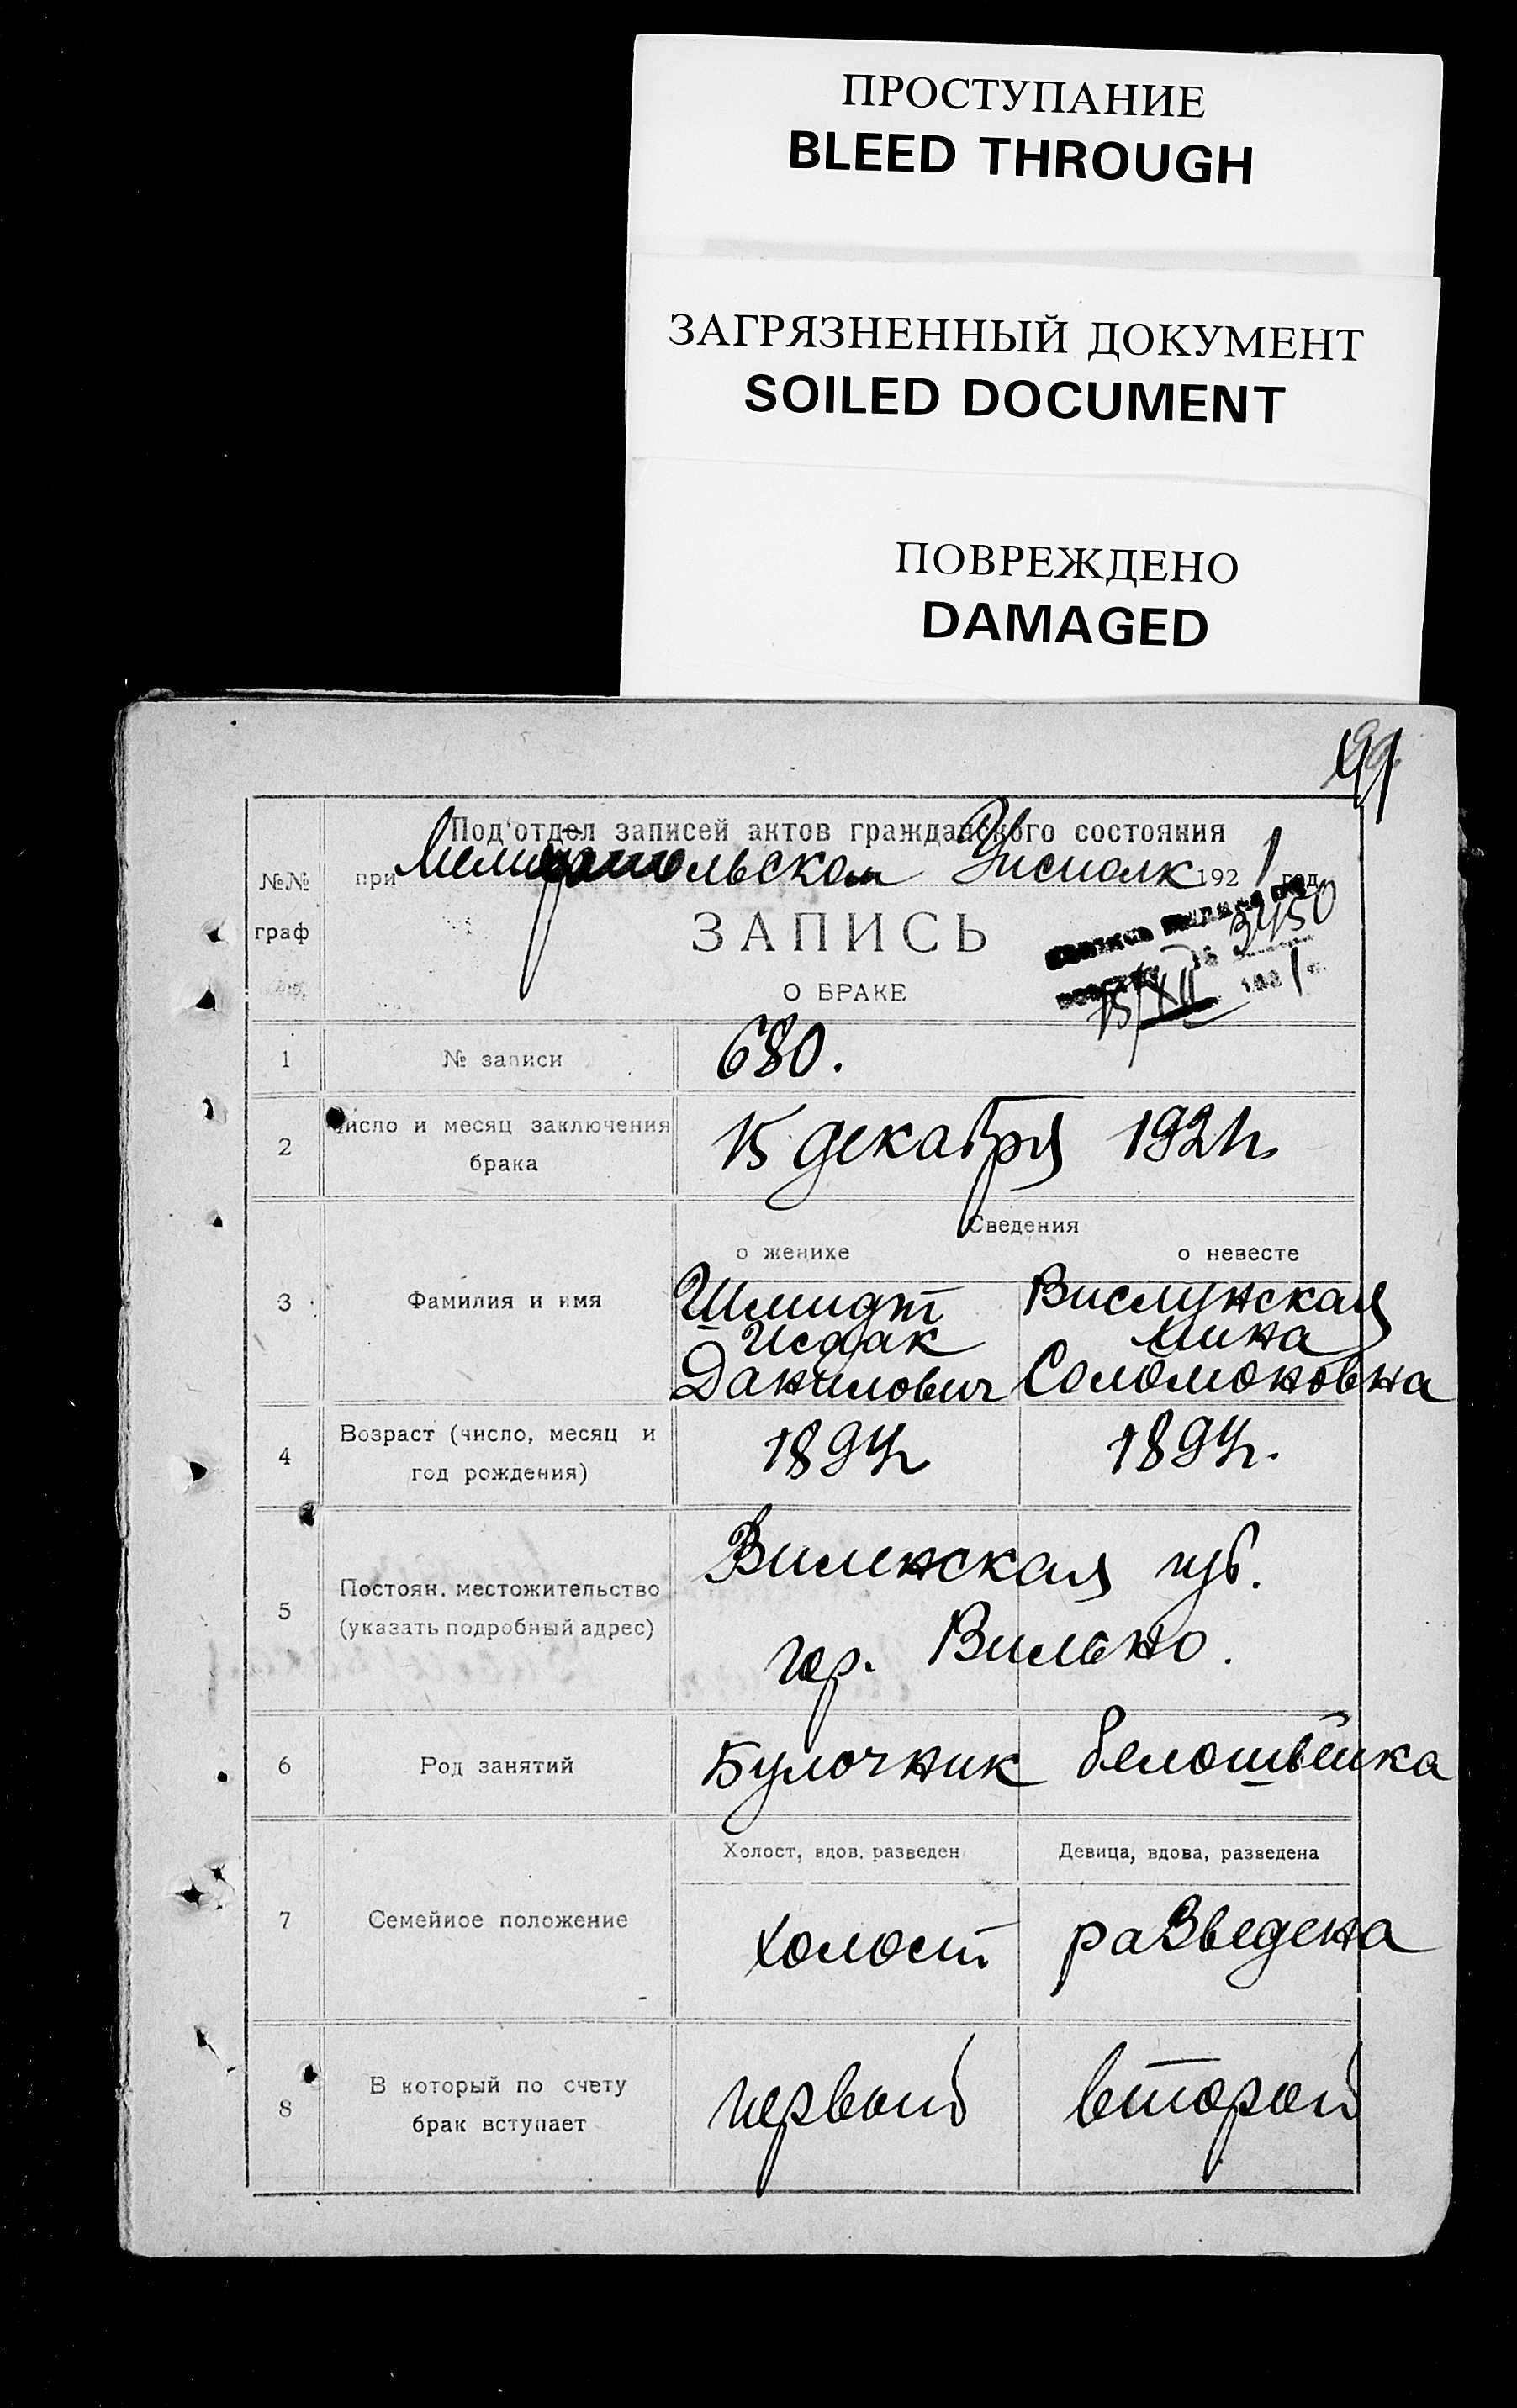 ПРОСТУПАНИЕ
BLEED THROUGH
ЗАГРЯЗНЕННЫЙ ДОКУМЕНТ
SOILED DOCUMENT
ПОВРЕЖДЕНО
DAMAGED
Под'отдел записей актов гражданского состояния
при Мелитопольском Уисполк 1921 год.
№№
граф
ЗАПИСЬ
О БРАКЕ
№ 3450
15/XII 1921 г.
1 № записи 680.
2 Число и месяц заключения
брака
15 декабря 1921 г.
Сведения
о женихе о невесте
3 Фамилия и имя
Шмидт Вислунская
Исаак Мина
Данилович Соломоновна
4 Возраст (число, месяц и
год рождения)
1894 г. 1894 г.
5 Постоян. местожительство
(указать подробный адрес)
Виленская губ.
гор. Вильно.
6 Род занятий Булочник белошвейка
Холост, вдов, разведен Девица, вдова, разведена
7 Семейное положение холост разведена
8 В который по счету
брак вступает
первый второй